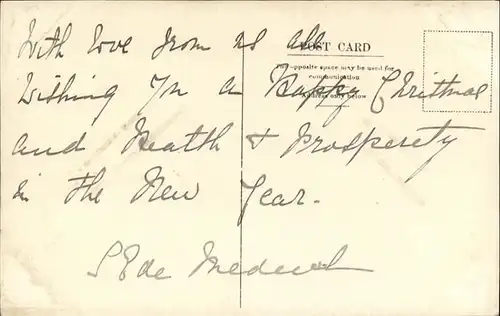 With love from us all
POST CARD
The opposite space may be used for
communication
Address only below
Wishing yu a Happy Christmas
and Health & Prosperety
in the New Year.